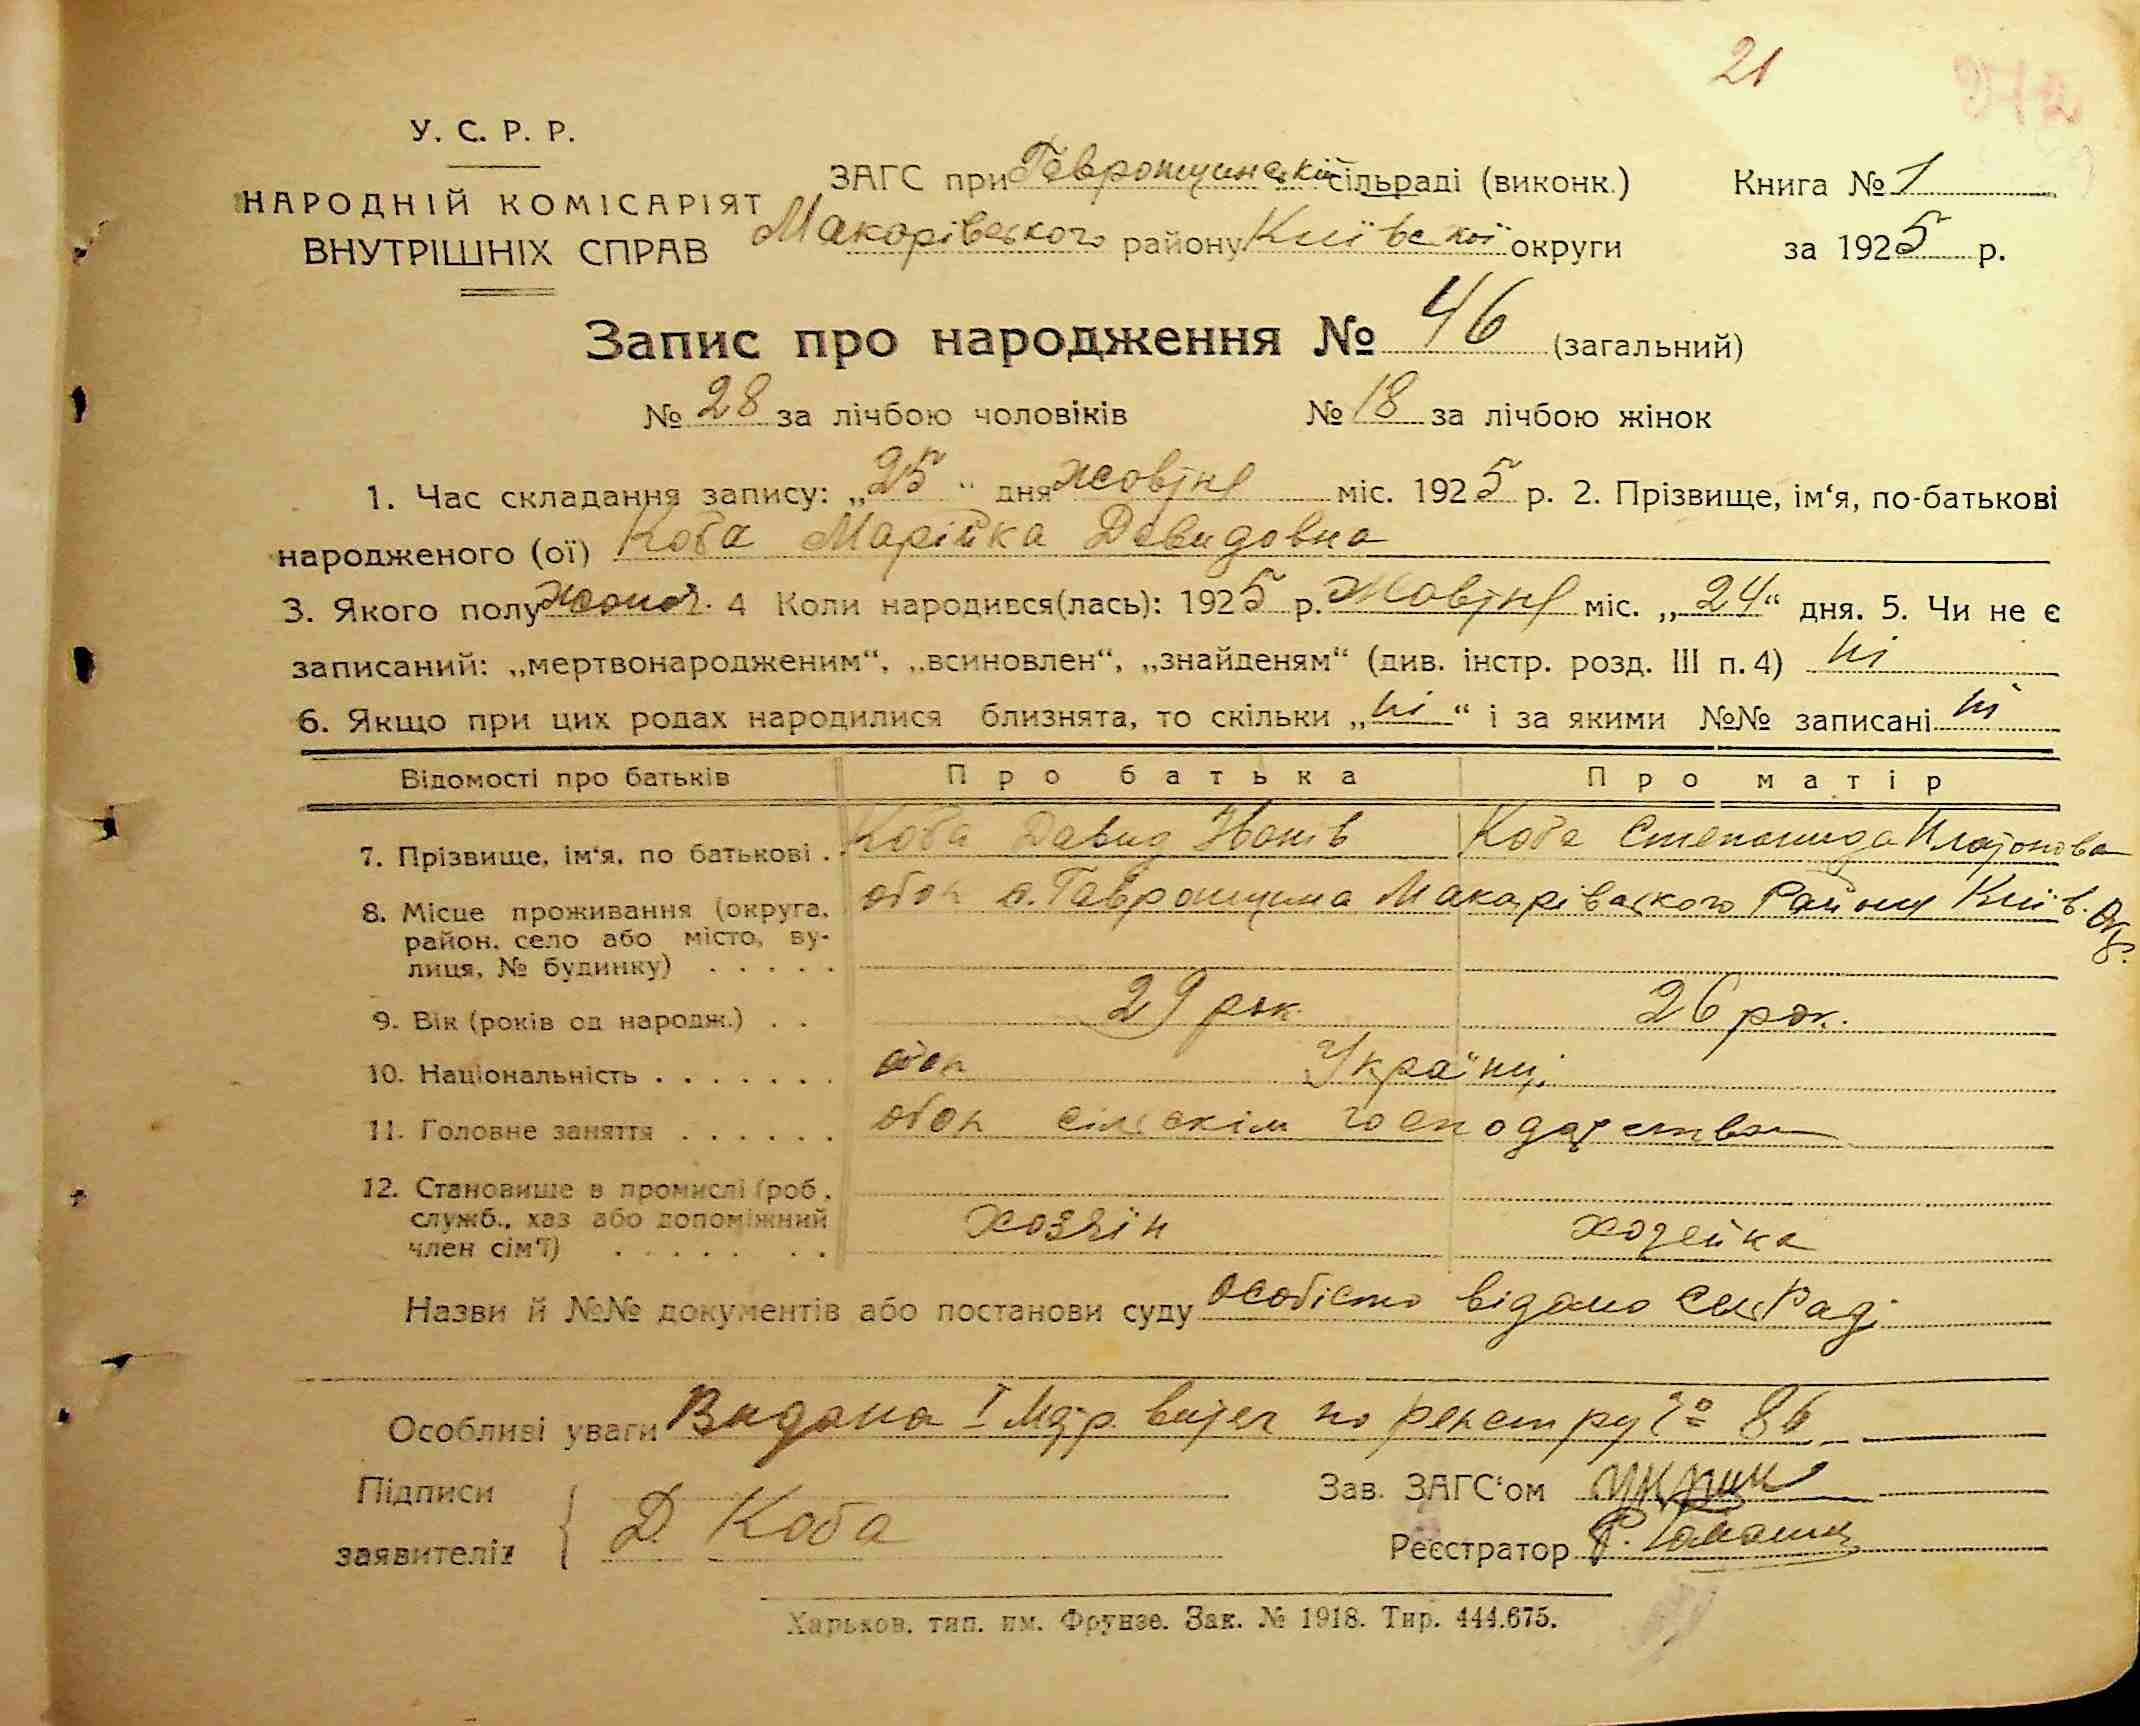 21
У. С. Р. Р.
НАРОДНІЙ КОМІСАРІЯТ
ВНУТРІШНІХ СПРАВ
ЗАГС при Гавронщинській сільраді (виконк.)
Макарівського району Київської округи
Книга № 1
за 1925 р.
Запис про народження № 46 (загальний)
№ 28 за лічбою чоловіків № 18 за лічбою жінок
1. Час складання запису: „25“ дня жовтня міс. 1925 р. 2. Прізвище, ім‘я, по-батькові
народженого (ої) Коба Марійка Давидовна
3. Якого полу 4 Коли народився(лась): 1925 р. Жовтня міс. „24“ дня. 5. Чи не є
записаний: „мертвонародженим“, „всиновлен“, „знайденям“ (див. інстр. розд. III п. 4) ні
6. Якщо при цих родах народилися близнята, то скільки „ні“ і за якими №№ записані ні
Відомості про батьків Про батька Про матір
7. Прізвище, ім‘я, по батькові . Коба Давид Коба Степанида Платонова
8. Місце проживання (округа, район, село або місто, вулиця, № будинку) . . . . . с. Гавронщина Макарівського Району Київ. Окр.
9. Вік (років од народж.) . . 29 рок. 26 рок.
10. Національність . . . . . . . Українці
11. Головне заняття . . . . . . сільскім господарством
12. Становище в промислі (роб., служб., хаз або допоміжний член сім‘ї) . . . . . . . хозяїн хозейка
Назви й №№ документів або постанови суду особісто відомо
Особливі уваги Видана I по реєстру № 86
Підписи
заявителів Д. Коба
Зав. ЗАГС‘ом
Реєстратор
Харьков, тип. им. Фрунзе. Зак. № 1918. Тир. 444.675.